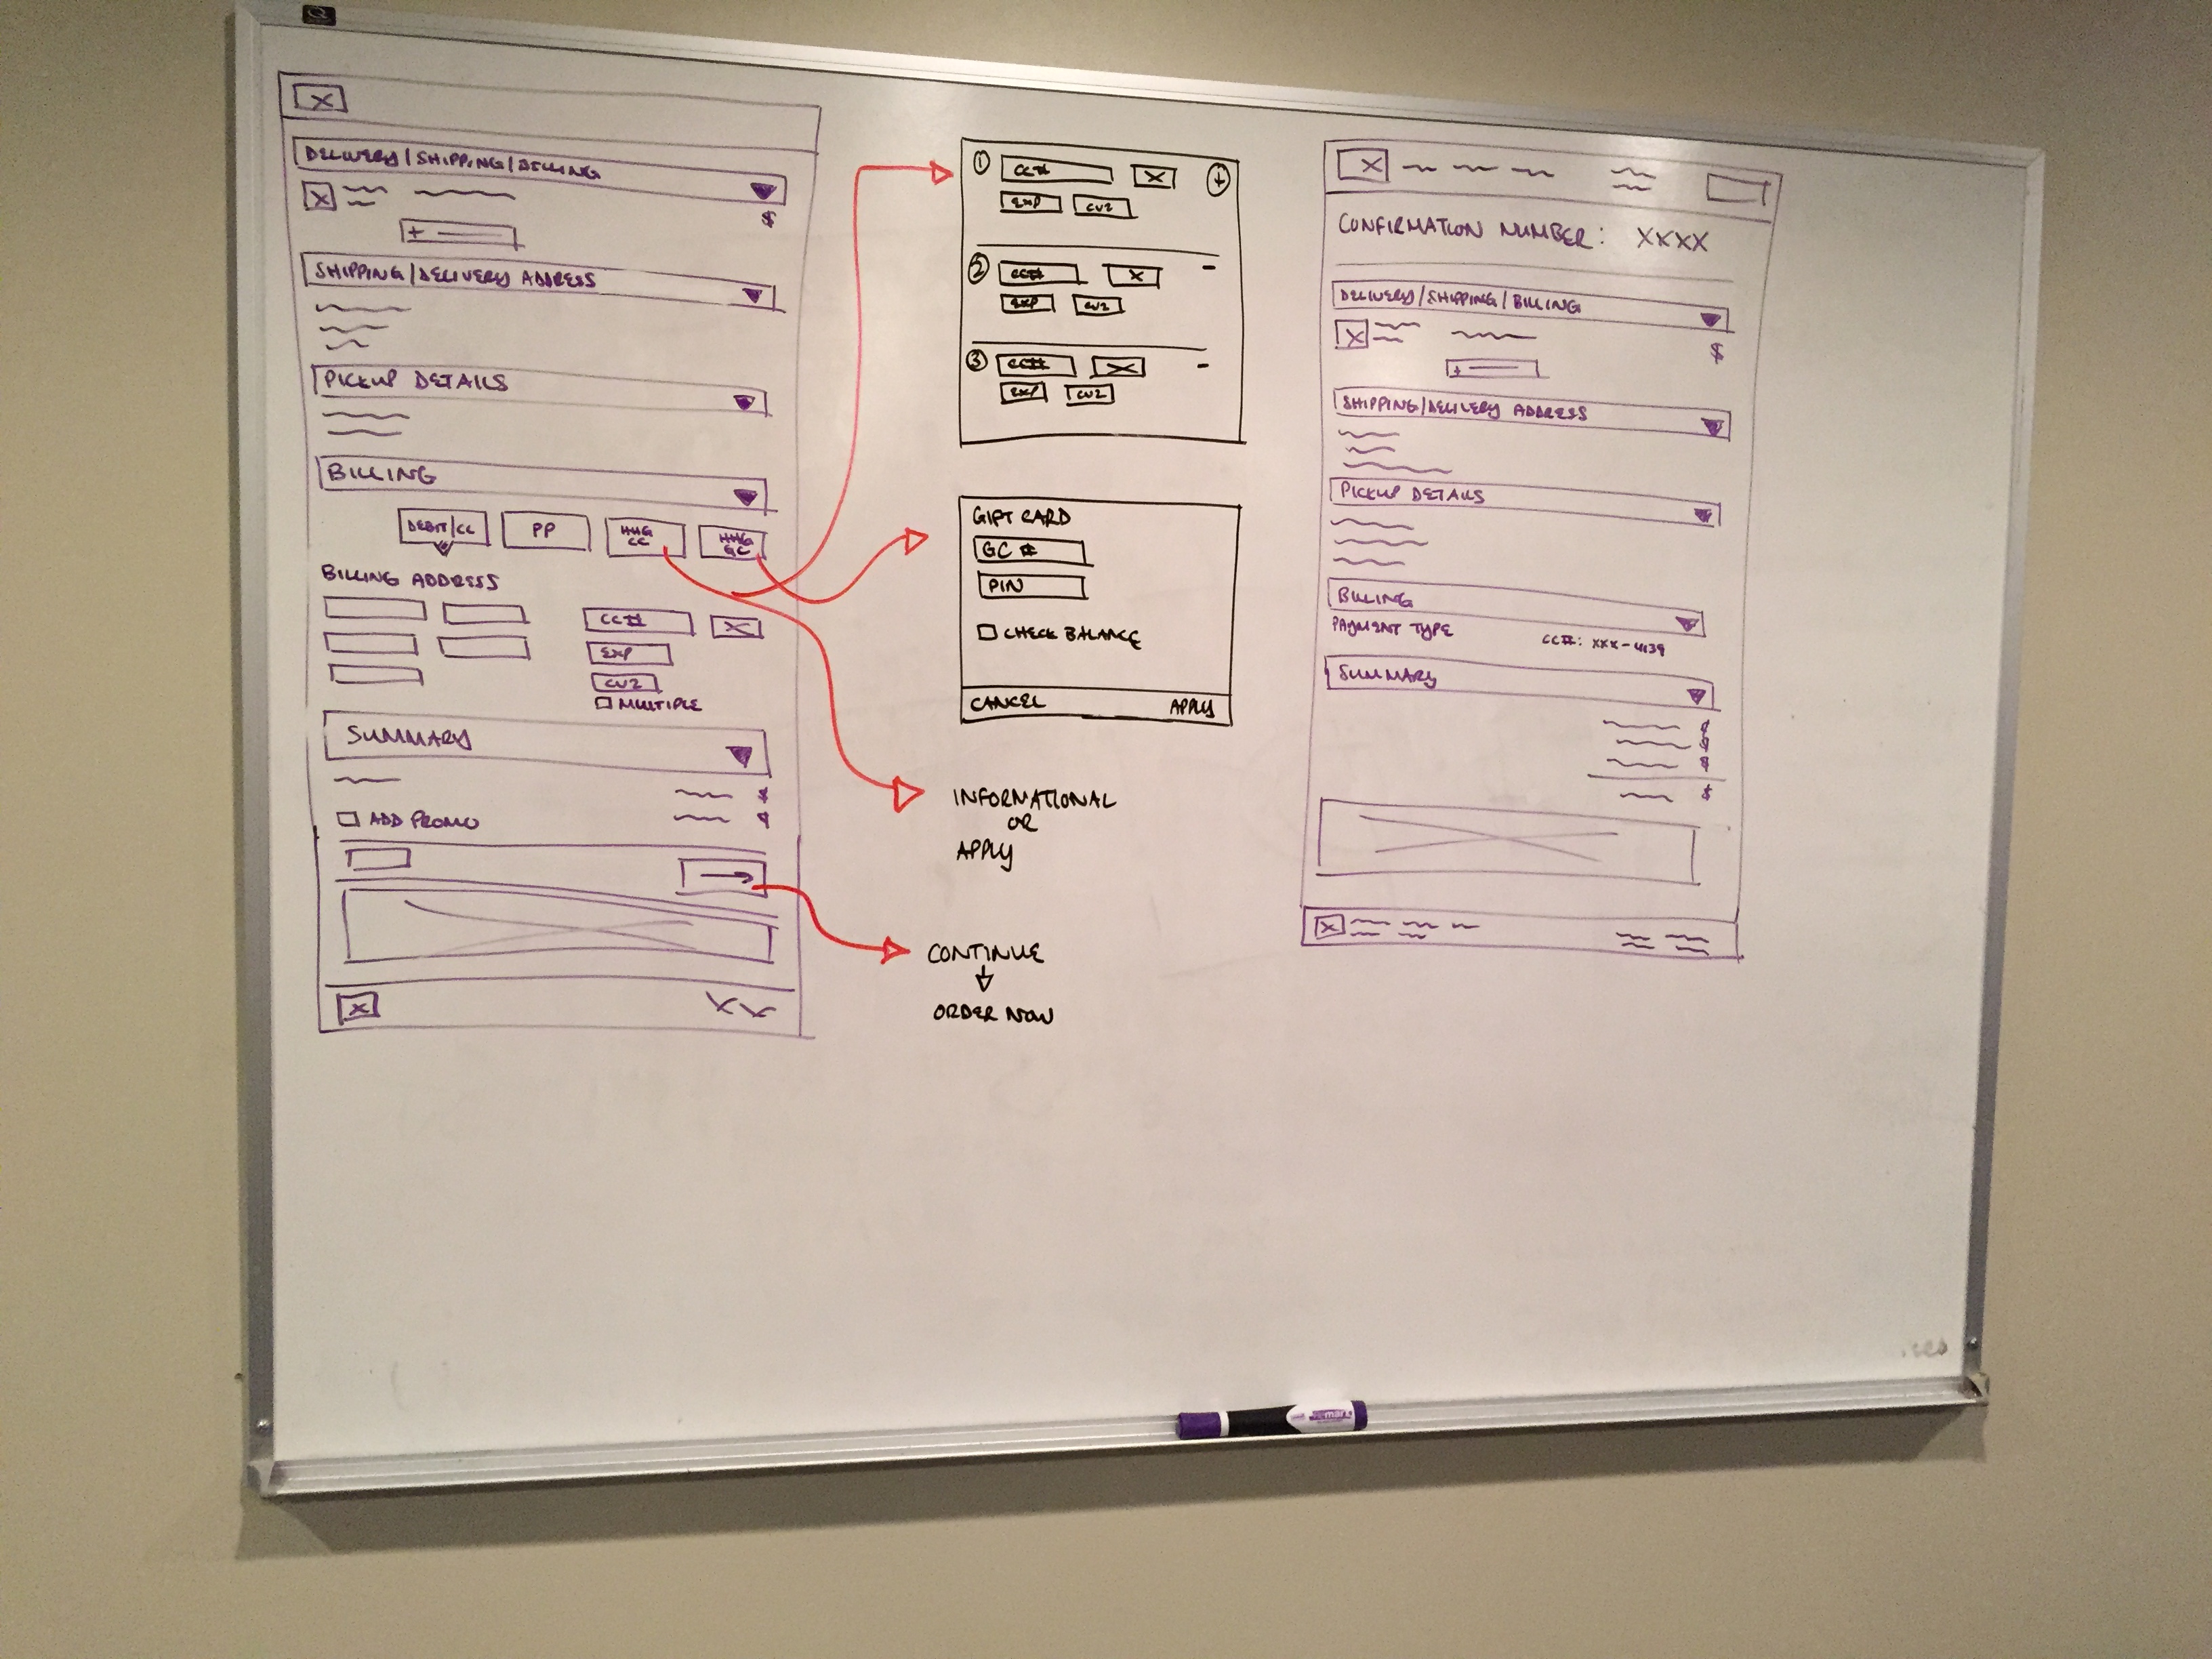 DELIVERY/SHIPPING/BILLING
$
+
SHIPPING/DELIVERY ADDRESS
PICKUP DETAILS
BILLING
DEBIT/CC
PP
HHG
CC
HHG
GC
BILLING ADDRESS
CC#
EXP
CV2
MULTIPLE
SUMMARY
$
$
ADD PROMO
1
CC#
EXP
CV2
2
CC#
-
EXP
CV2
3
CC#
-
EXP
CV2
GIFT CARD
GC #
PIN
CHECK BALANCE
CANCEL
APPLY
INFORMATIONAL
OR
APPLY
CONTINUE
ORDER NOW
CONFIRMATION NUMBER: XXXX
DELIVERY/SHIPPING/BILLING
$
+
SHIPPING/DELIVERY ADDRESS
PICKUP DETAILS
BILLING
PAYMENT TYPE
CC#: XXX-4139
SUMMARY
$
$
$
$